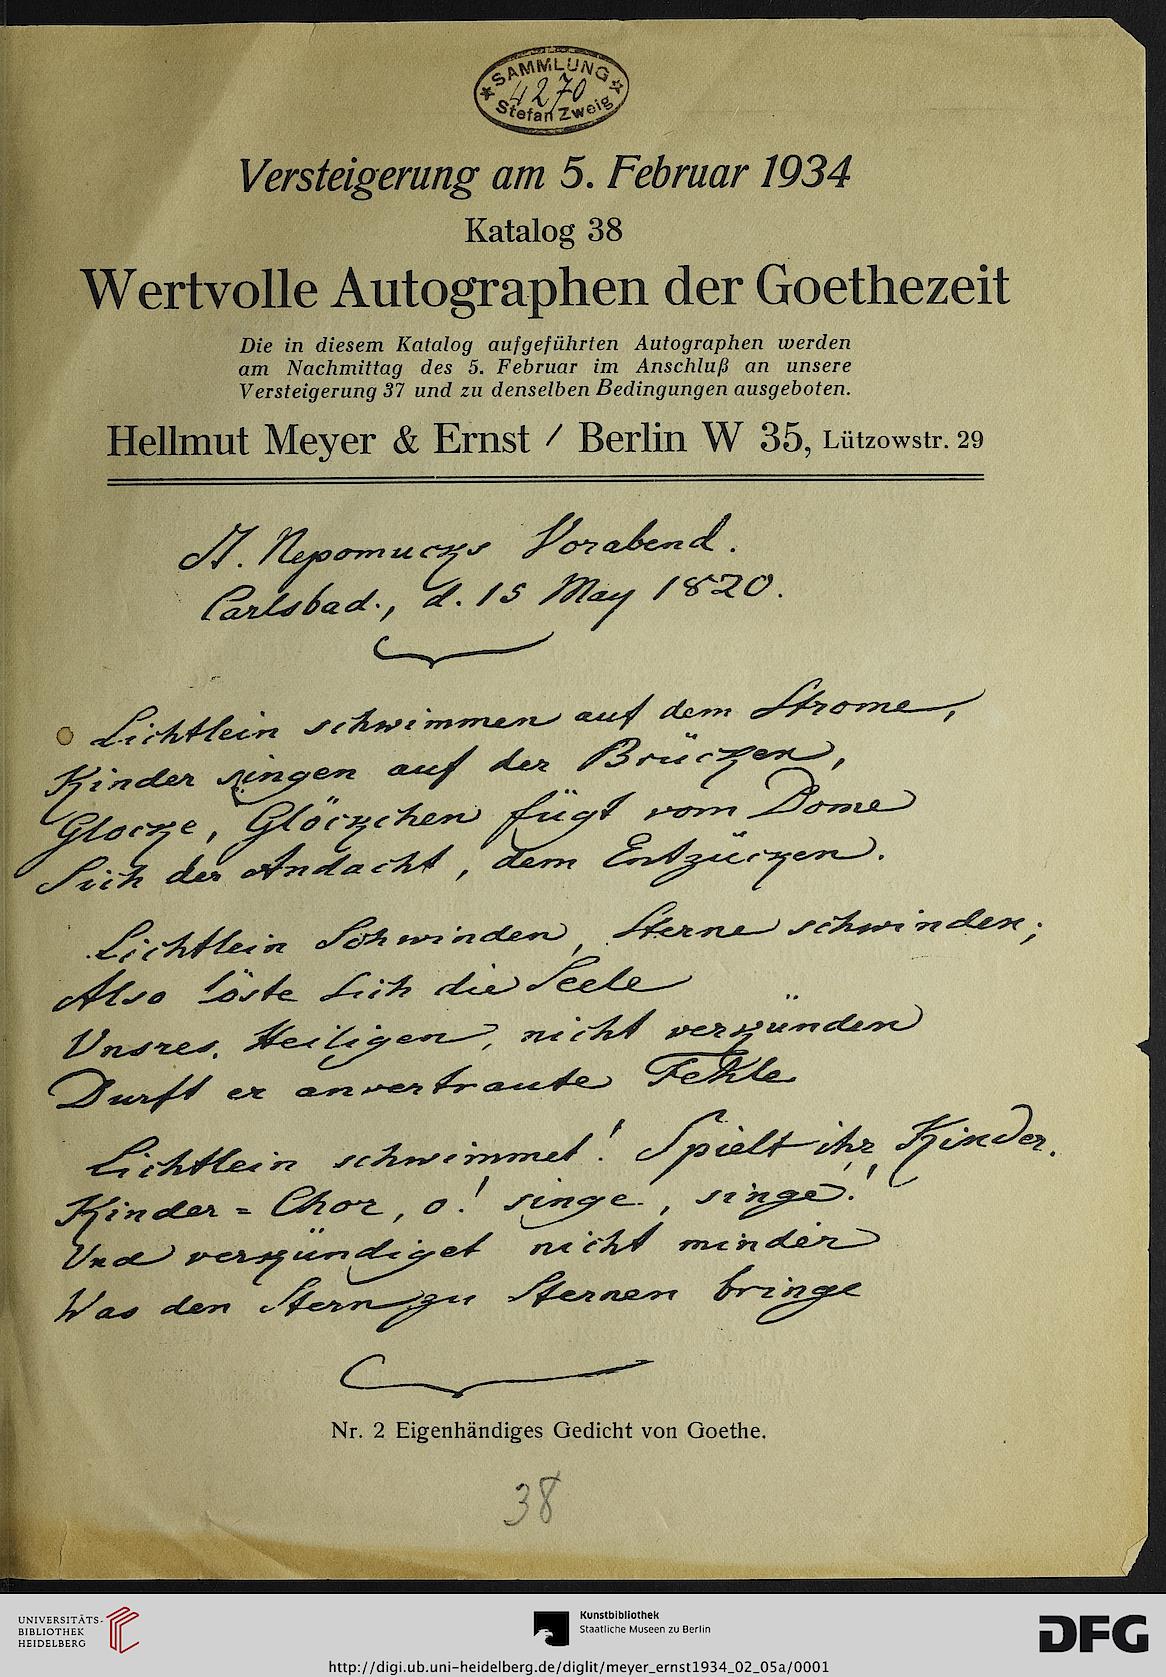 SAMMLUNG
4270
Stefan Zweig
Versteigerung am 5. Februar 1934
Katalog 38
Wertvolle Autographen der Goethezeit
Die in diesem Katalog aufgeführten Autographen werden
am Nachmittag des 5. Februar im Anschluß an unsere
Versteigerung 37 und zu denselben Bedingungen ausgeboten.
Hellmut Meyer & Ernst / Berlin W 35, Lützowstr. 29
St. Nepomucks Vorabend.
Carlsbad., d. 15 May 1820.
Lichtlein schwimmen auf dem Strome,
Kinder singen auf der Brücken,
Glocke, Glöckchen fügt vom Dome
Sich der Andacht, dem Entzücken.
Lichtlein Schwinden, Sterne schwinden;
Also löste sich die Seele
Unsres Heiligen, nicht verkünden
Durft er anvertraute Fehle
Lichtlein schwimmet! Spielt ihr Kinder.
Kinder=Chor, o! singe, singe!
Und verkündiget nicht minder
Was den Stern zu Sternen bringe
Nr. 2 Eigenhändiges Gedicht von Goethe.
38
UNIVERSITÄTS-
BIBLIOTHEK
HEIDELBERG
Kunstbibliothek
Staatliche Museen zu Berlin
DFG
http://digi.ub.uni-heidelberg.de/diglit/meyer_ernst1934_02_05a/0001